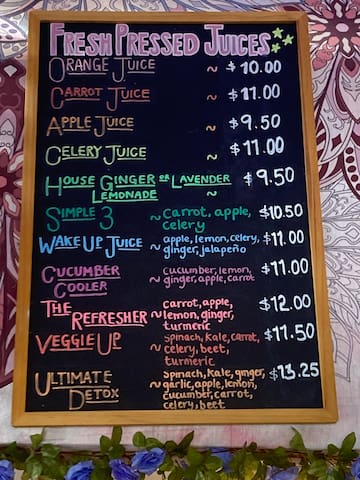 Fresh Pressed Juices
Orange Juice ~ $10.00
Carrot Juice ~ $11.00
Apple Juice ~ $9.50
Celery Juice ~ $11.00
House Ginger or Lavender Lemonade ~ $9.50
Simple 3 ~ Carrot, apple, celery $10.50
Wake Up Juice ~ apple, lemon, celery, ginger, jalapeño $11.00
Cucumber Cooler ~ Cucumber, lemon, ginger, apple, carrot $11.00
The Refresher ~ carrot, apple, lemon, ginger, turmeric $12.00
Veggie Up ~ Spinach, Kale, carrot, celery, beet, turmeric $11.50
Ultimate Detox ~ Spinach, Kale, ginger, garlic, apple, lemon, cucumber, carrot, celery, beet $13.25